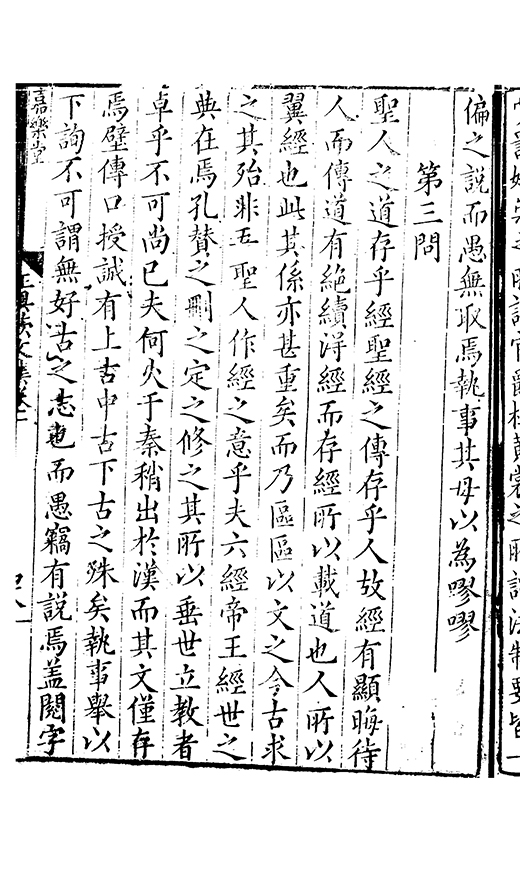 偏之說而愚無取焉執事其毋以為嘐嘐
第三問
聖人之道存乎經聖經之傳存乎人故經有顯晦待
人而傳道有絕續得經而存經所以載道也人所以
翼經也此其係亦甚重矣而乃區區以文之今古求
之其殆非五聖人作經之意乎夫六經帝王經世之
典在焉孔贊之刪之定之修之其所以垂世立教者
卓乎不可尚已夫何火于秦稍出於漢而其文僅存
焉壁傳口授誠有上古中古下古之殊矣執事舉以
下詢不可謂無好古之志也而愚竊有說焉蓋閱字
嘉樂堂